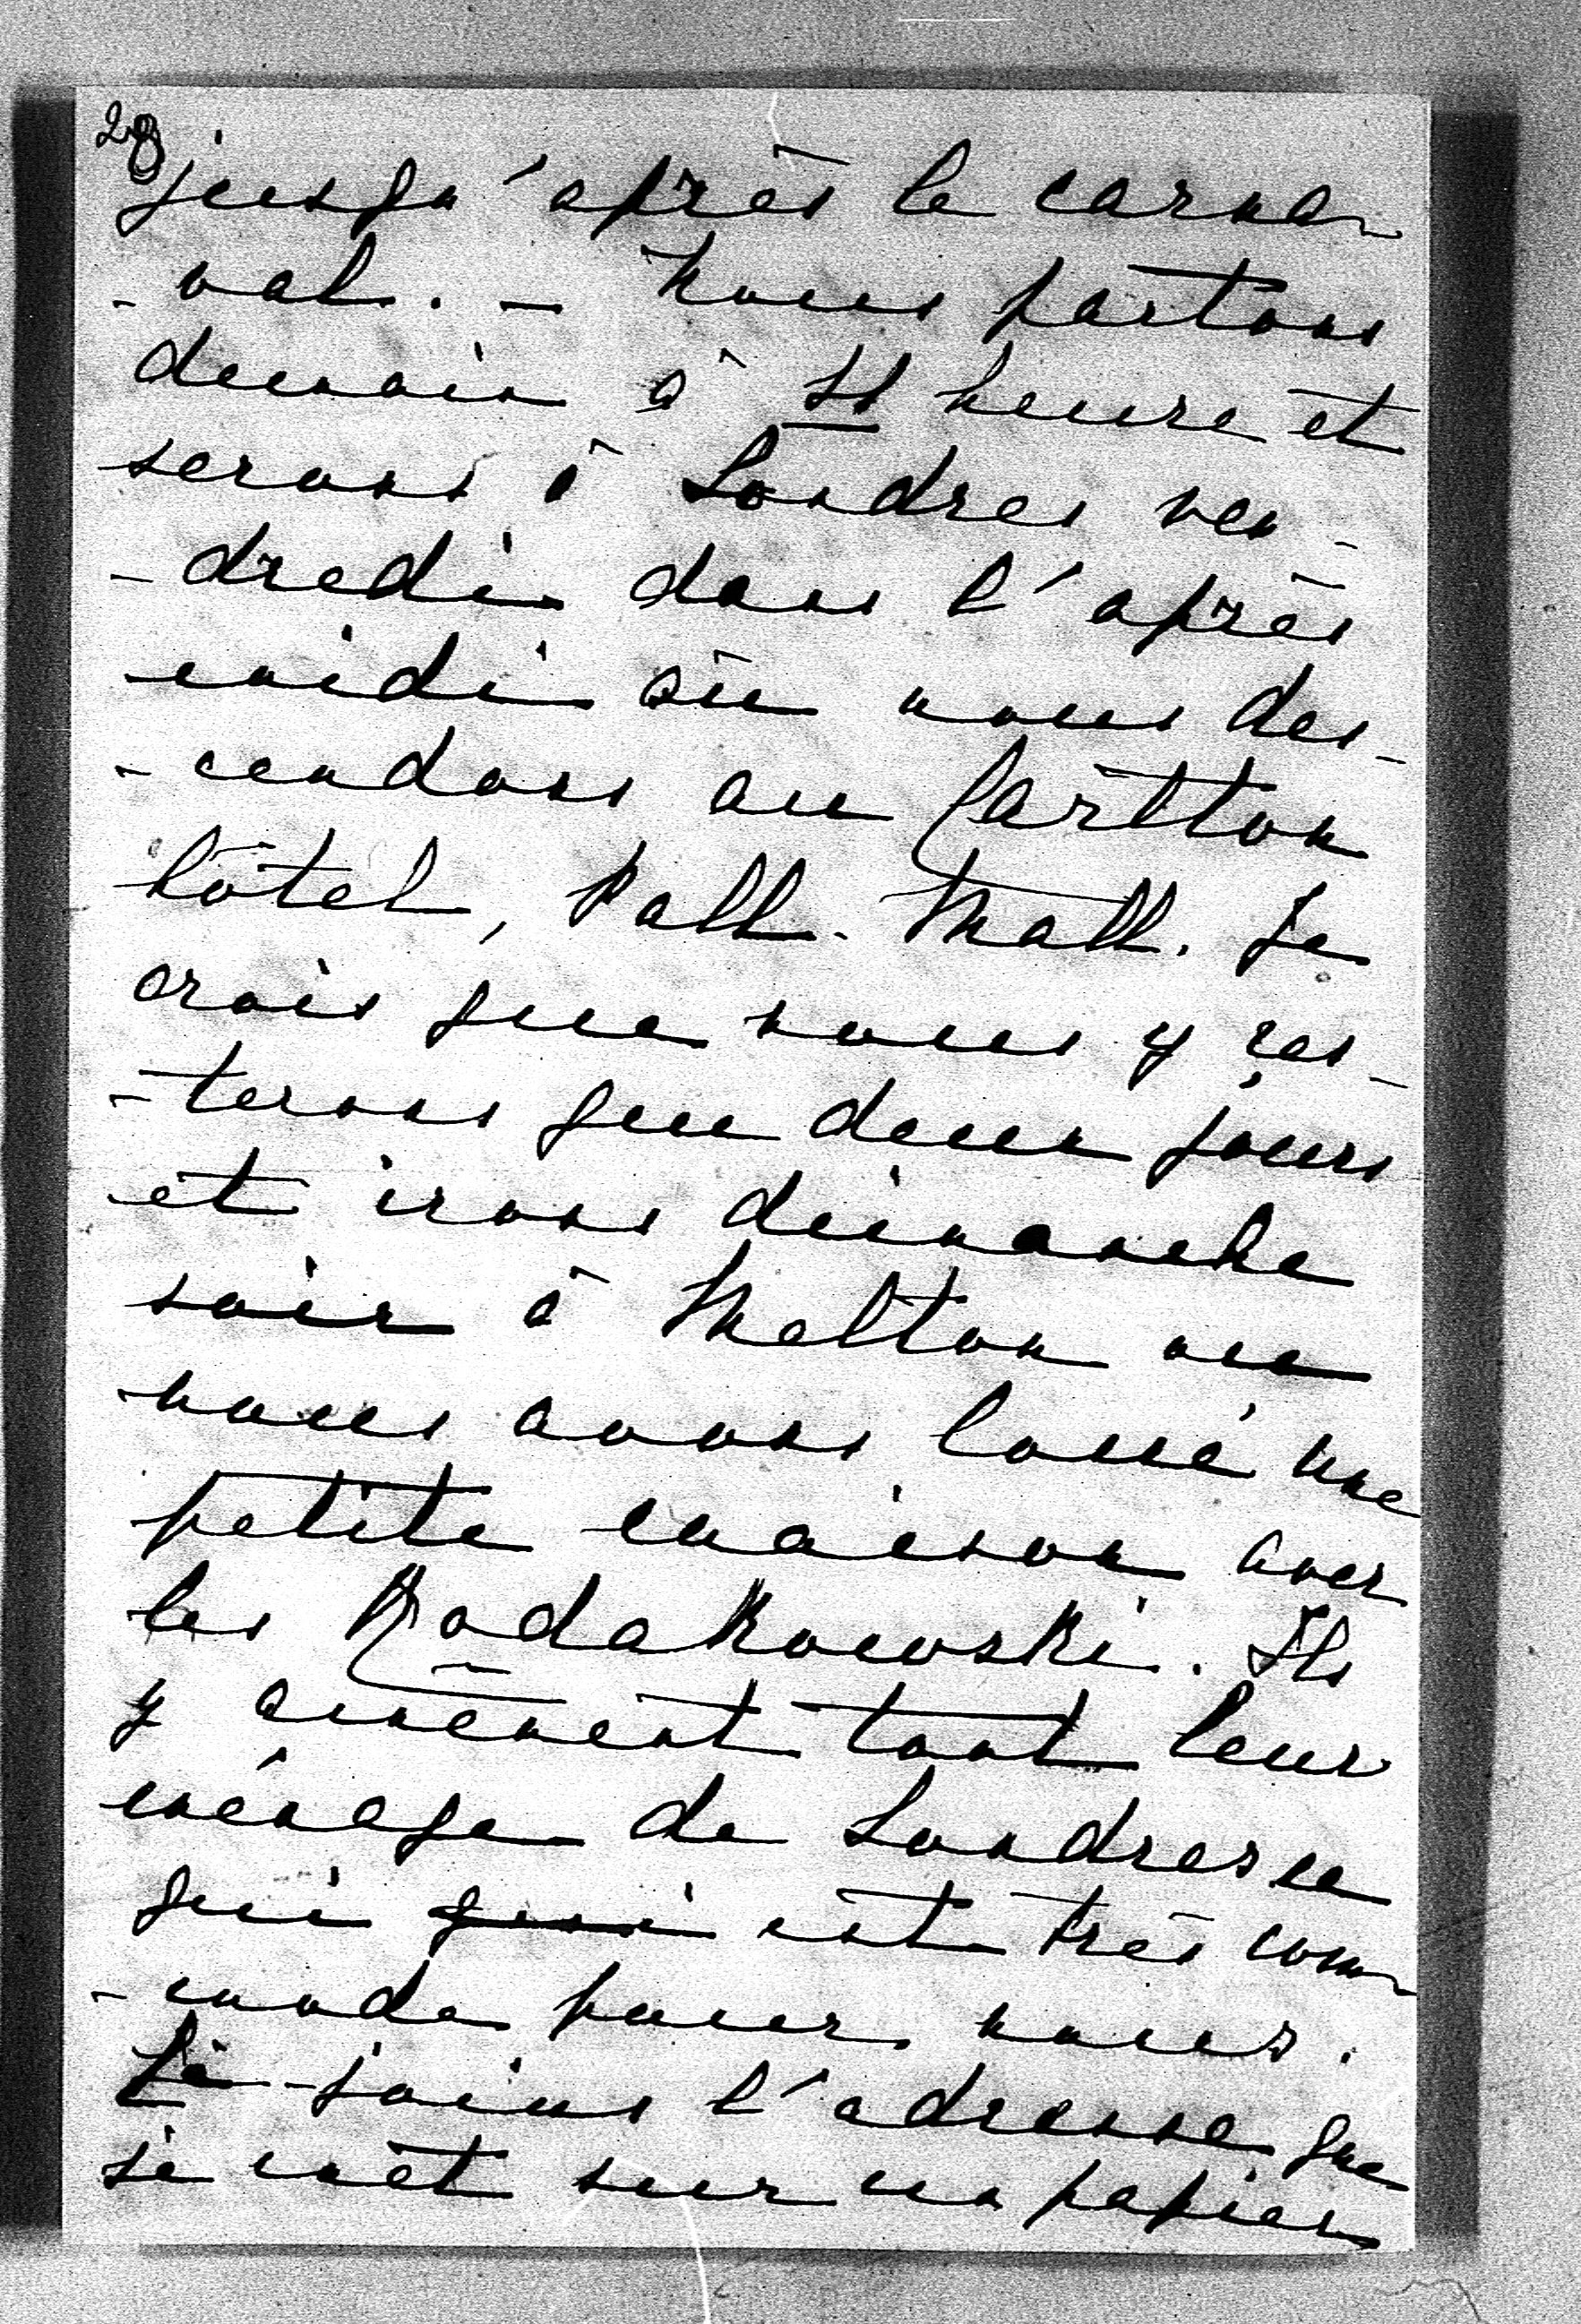 28
jusqu'après le carna-
-val. - Nous partons
demain à 11 heure et
serons à Londres ven-
-dredi dans l'après
midi où nous des-
-cendons au Carlton
hôtel, Pall-Mall. Je
crois que nous y res-
-terons que deux jours
et irons dimanche
soir à Melton où
nous avons loué une
petite maison avec
les Rodakowski. Ils
y amènent tout leur
ménage de Londres ce
qui qui est très com-
-mode pour nous.
Ci-joins l'adresse que
se met sur un papier